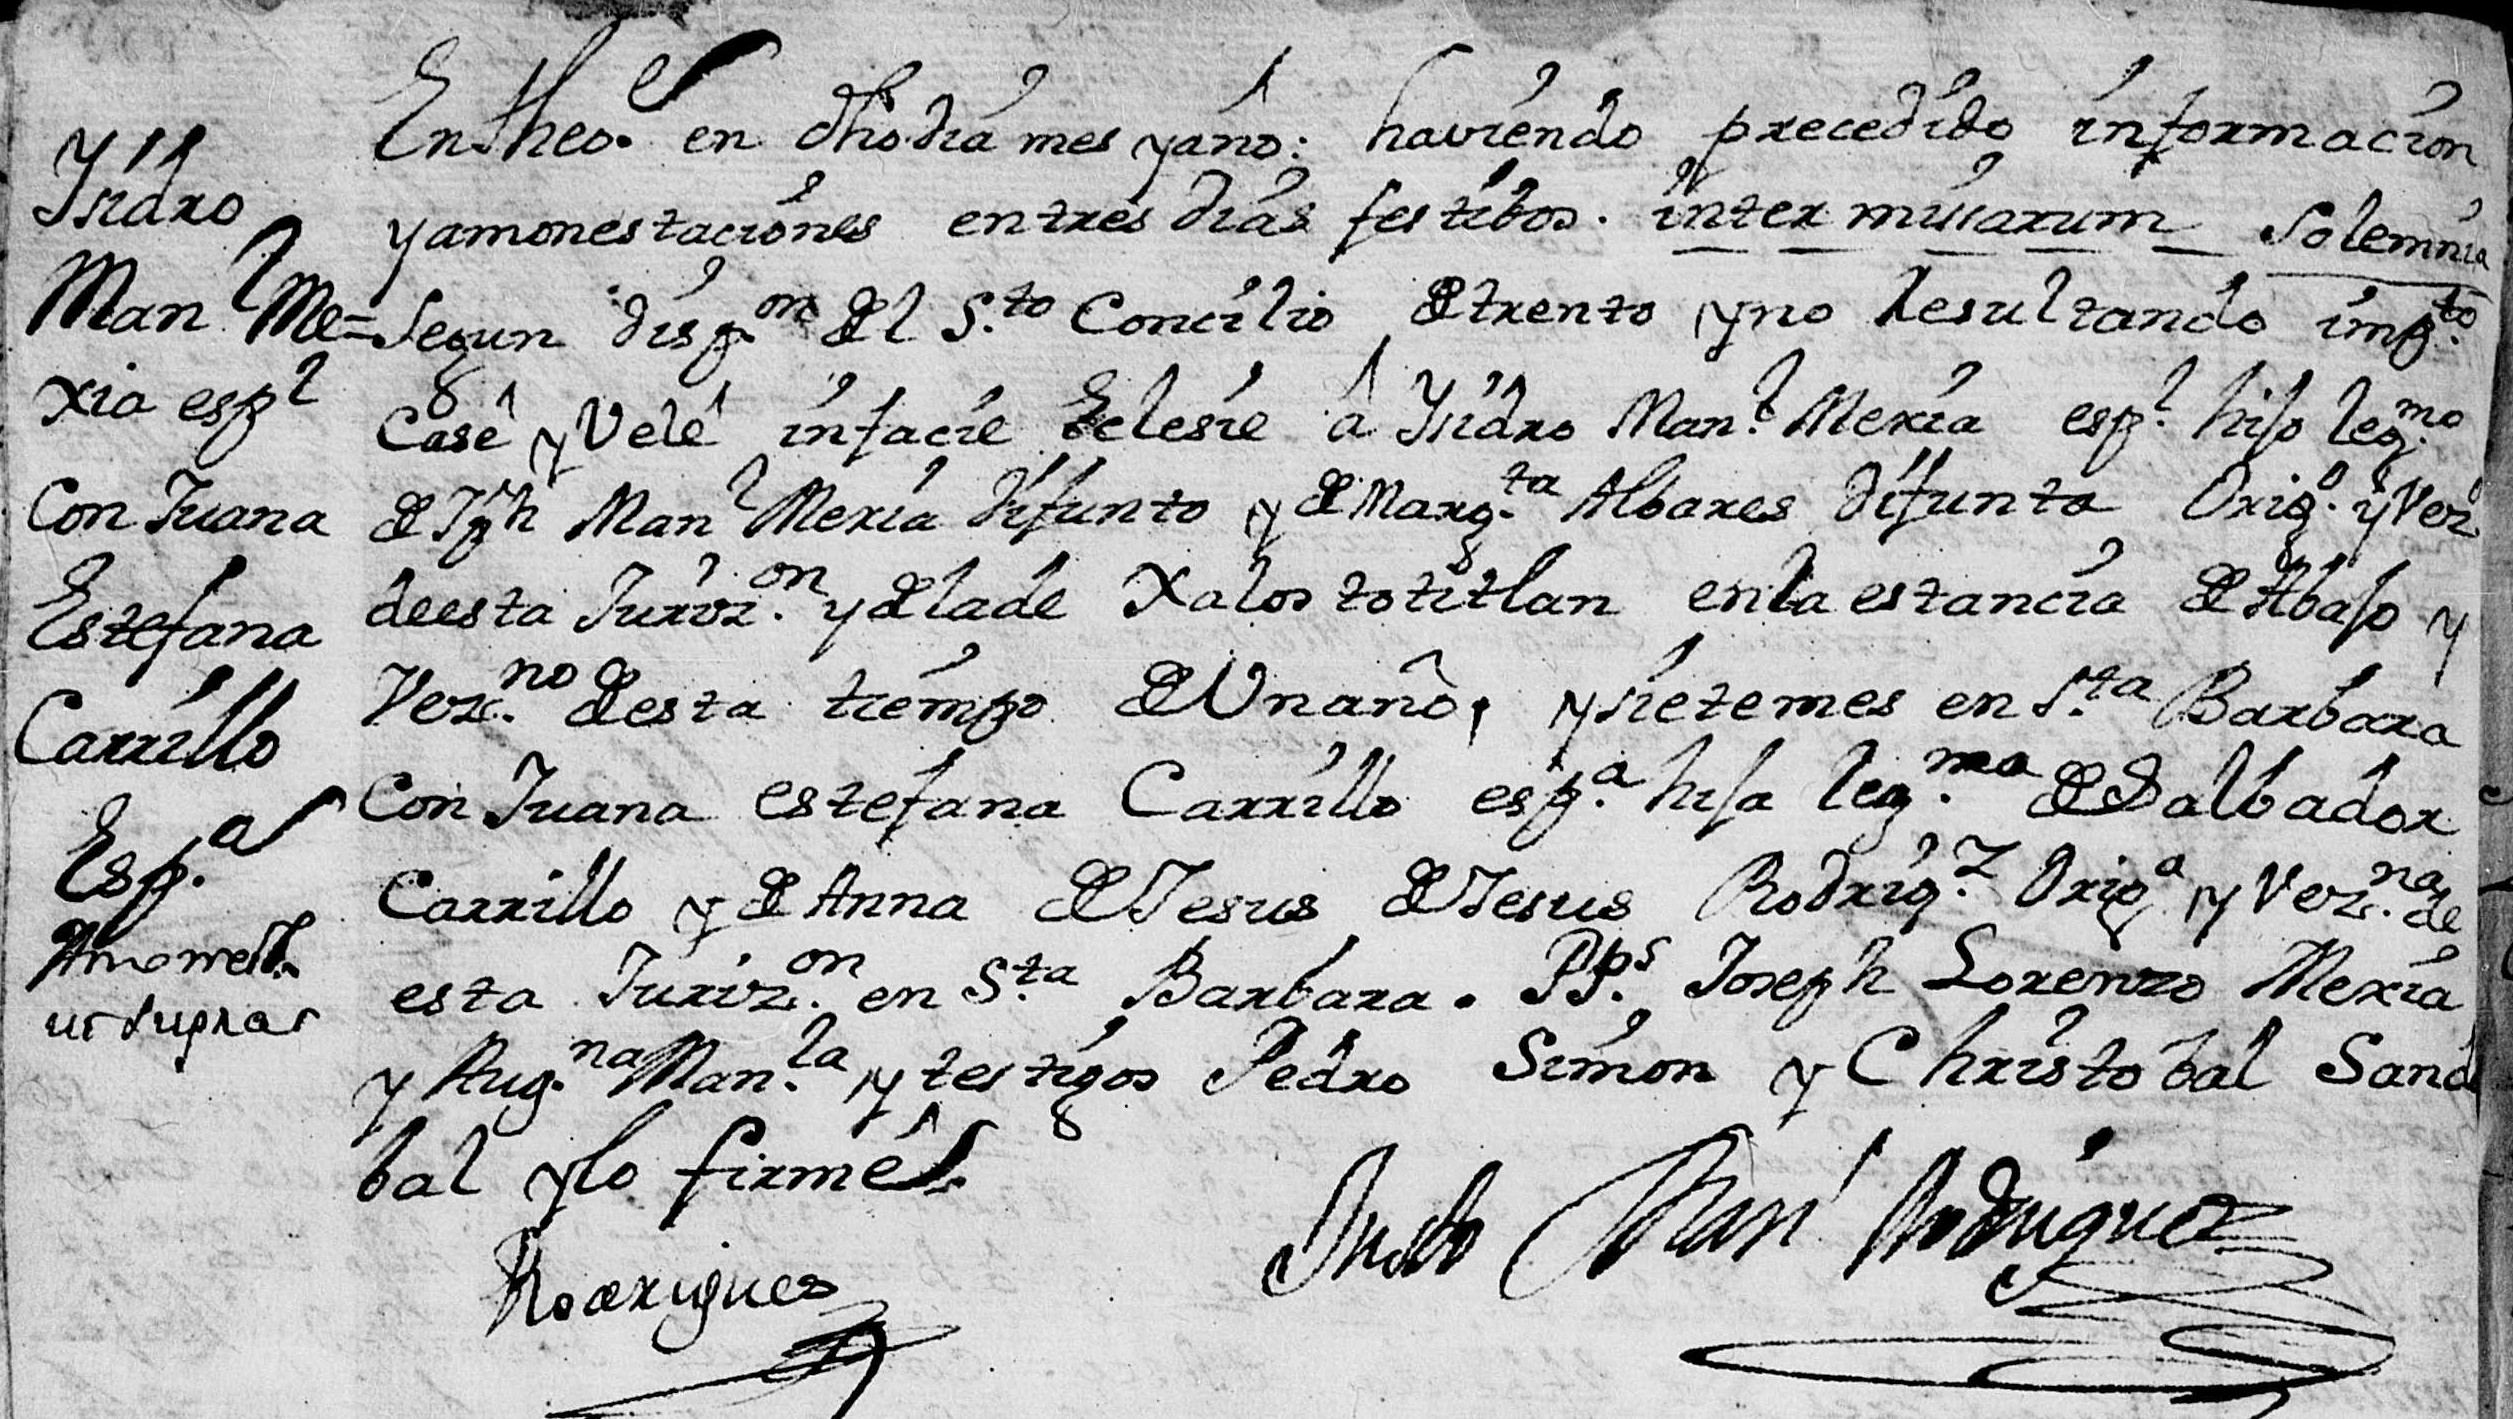 Ysidro
Man.l Me=
xia esp.l
Con Juana
Estefana
Carrillo
Esp.a
ut supra
En theo.e en dho dia mes y año: haviendo precedido informacion
y amonestaciones en tres dias festibos. inter missarum Solemnia
Segun disp.on del S.to Concilio de trento y no Resultando imp.to
Casé y Velé infacie Eclesie á Ysidro Man.l Mexia esp.l hijo leg.mo
de Jph Man.l Mexia difunto y de Marg.ta Albares difunta Orig.o y Vez.o
de esta Juriz.on y de la de Xalostotitlan en la estancia de Abajo y
Vez.no de esta tiempo de Un año, y siete mes en S.ta Barbara
Con Juana estefana Carrillo esp.a hija leg.ma de Salbador
Carrillo y de Anna de Jesus de Jesus Rodrig.z Orig.a y Vez.na de
esta Juriz.on en S.ta Barbara. Pp.s Joseph Lorenzo Mexia
y Aug.na Man.la y testigos Pedro Simon y Christobal Sando
bal y lo firmé
Rodrigues
Justo Man.l Rodriguez